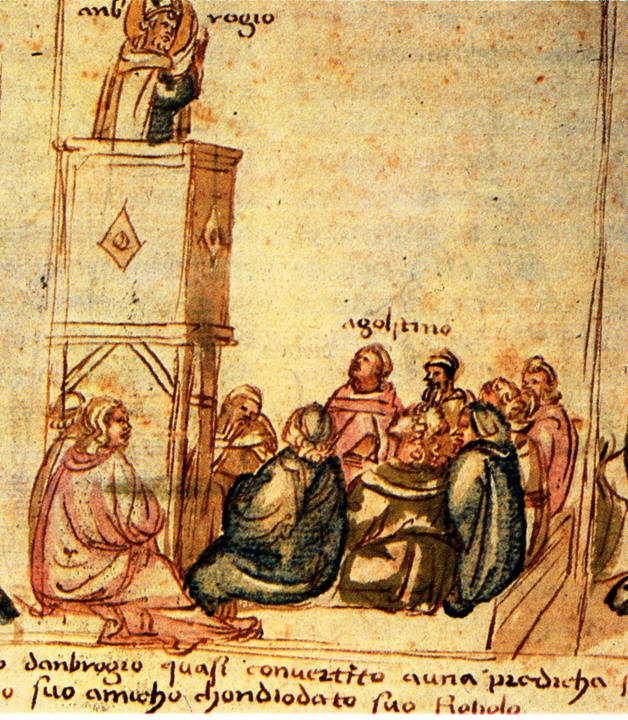 anb rogio
agostino
danbrogio quasi convertito auna predicha
o suo amicho chondiodato suo